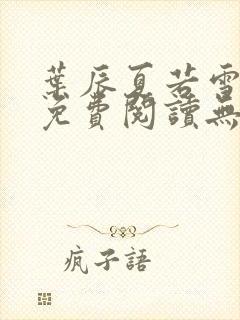 葉辰夏若雪
免費閱讀無
瘋子語